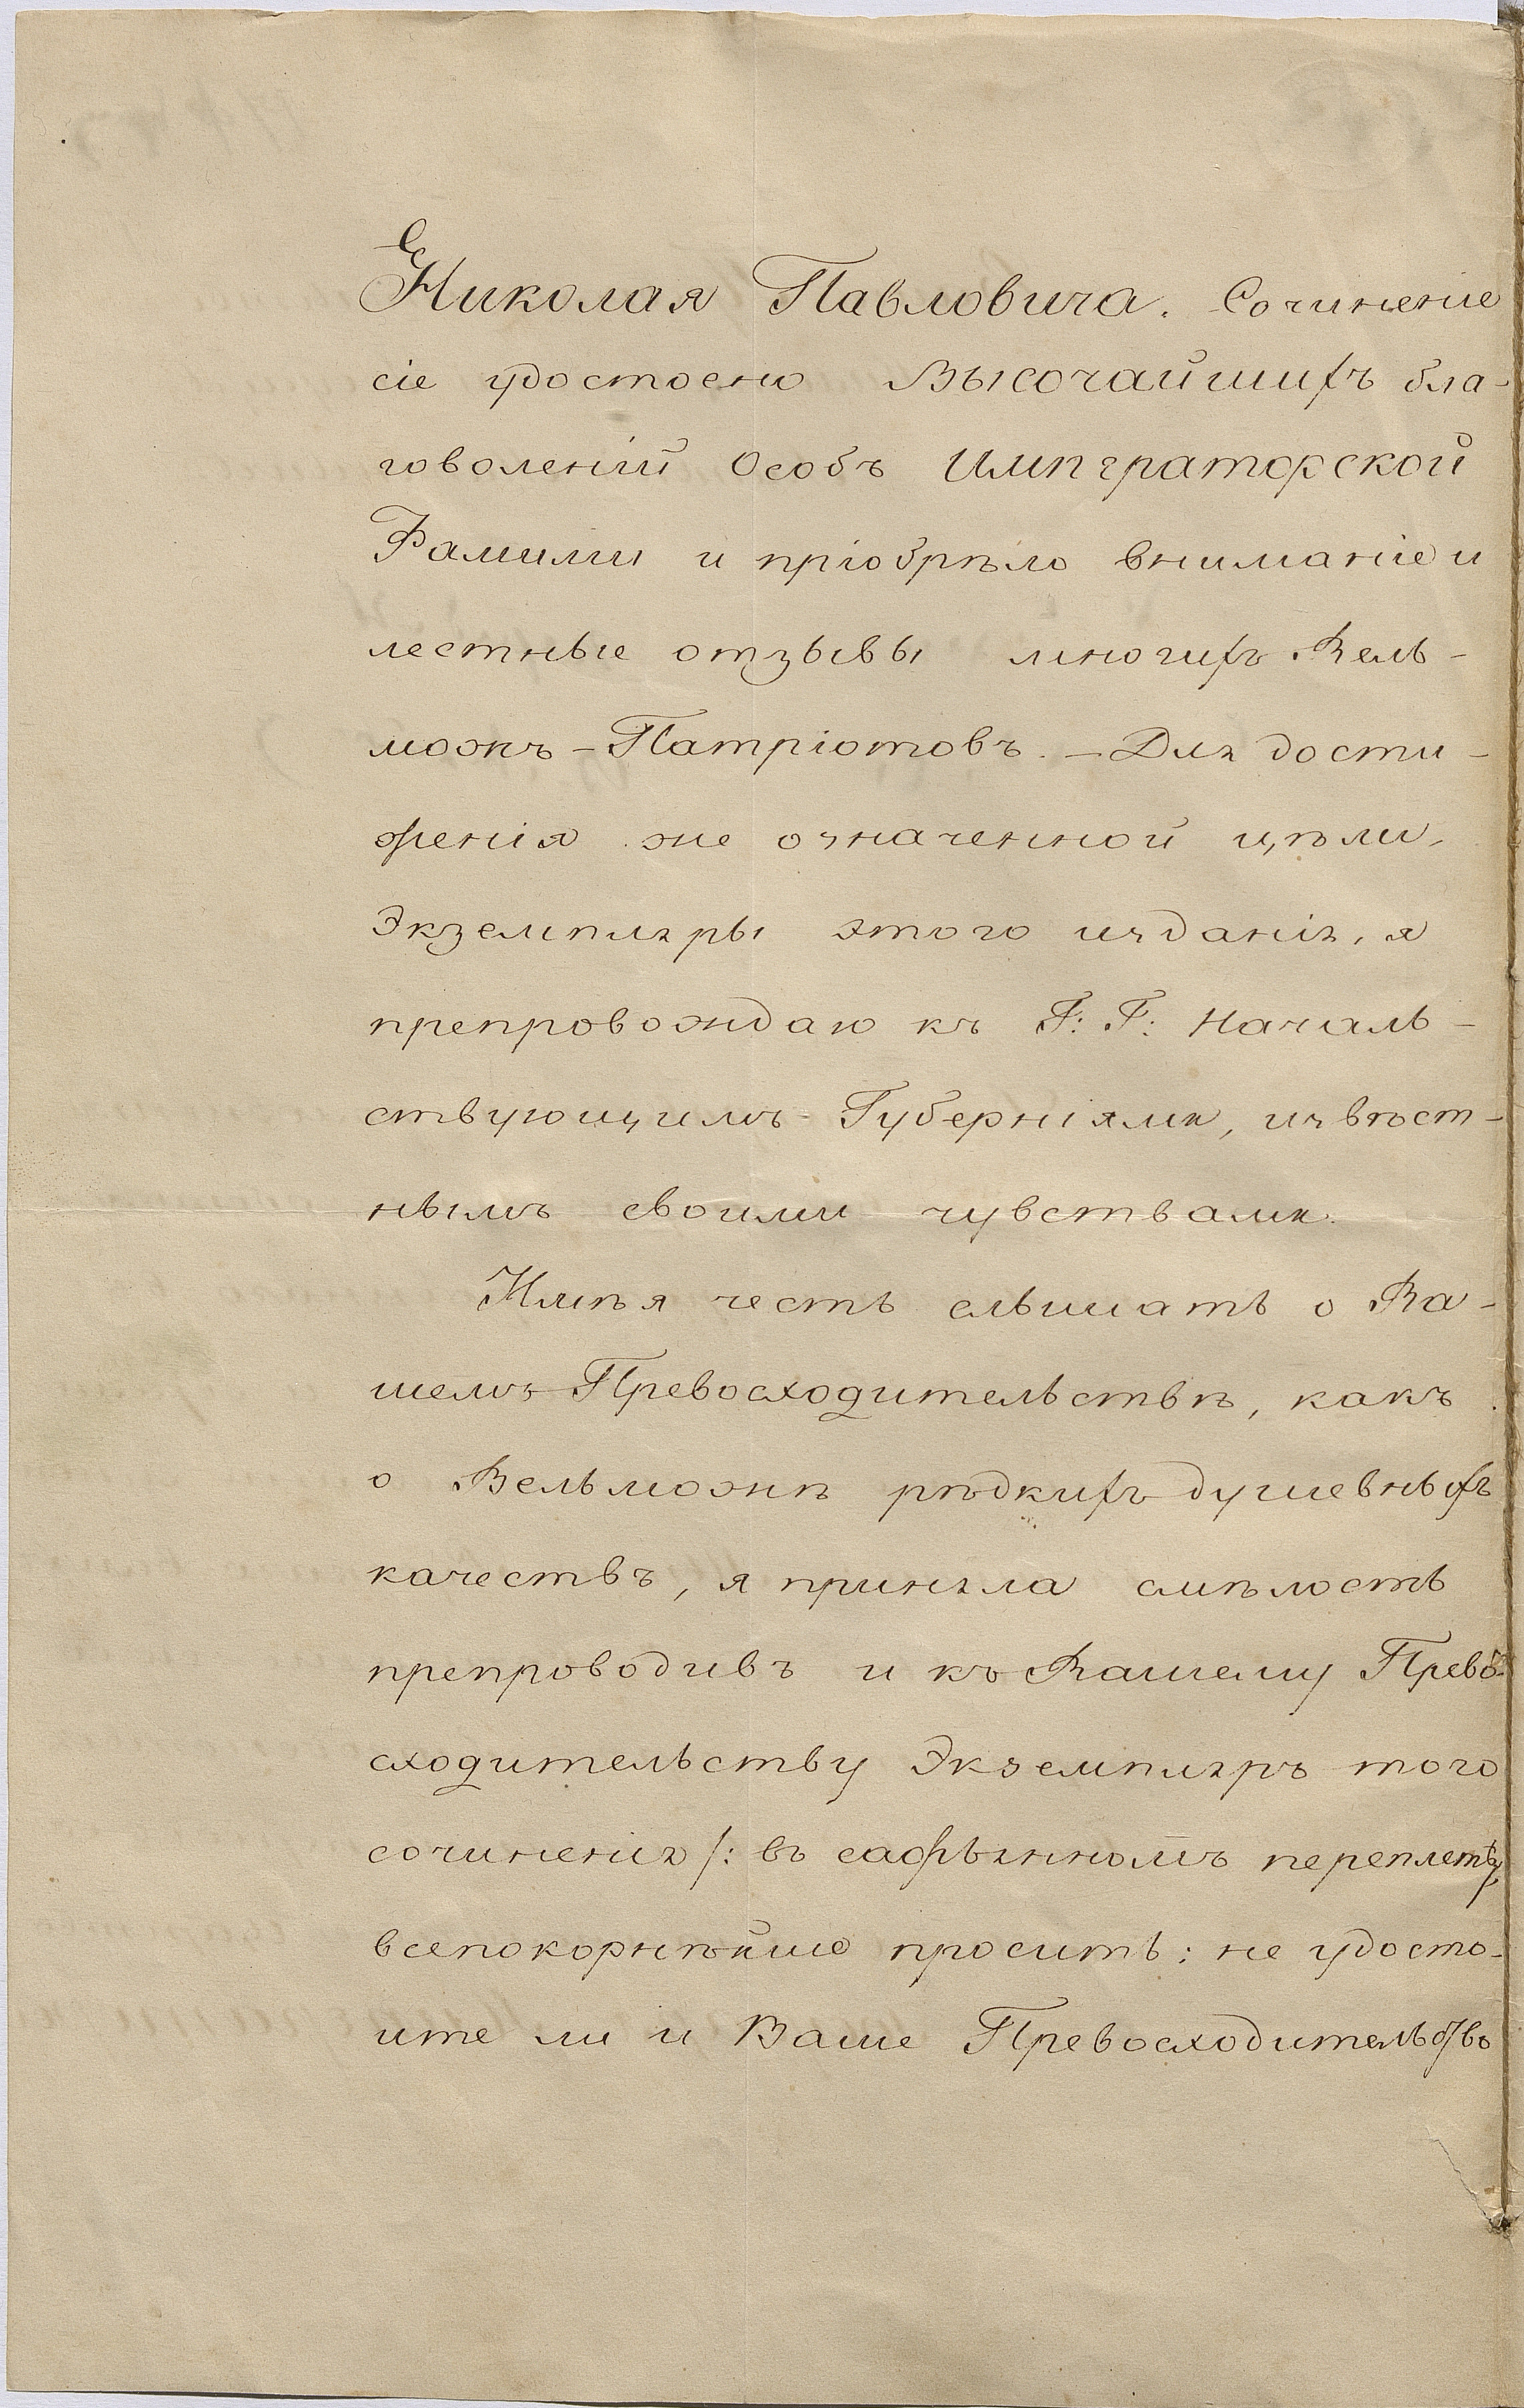 Николая Павловича. Сочиненіе
сіе удостоено Высочайшихъ бла-
говоленій Особъ Императорской
Фамиліи и пріобрѣло вниманіе и
лестные отзывы многихъ Вель-
можъ-Патріотовъ. - Для дости-
женія же означенной цѣли,
Экземпляры этого изданія, я
препровождаю къ Г: Г: Началь-
ствующимъ Губерніями, извѣст-
нымъ своими чувствами.
Имѣя честь слышать о Ва-
шемъ Превосходительствѣ, какъ
о Вельможѣ рѣдкихъ душевныхъ
качествъ, я приняла смѣлость
препроводивъ и къ Вашему Прево-
сходительству Экземпляръ того
сочиненія /: въ сафьянномъ переплетѣ,
всепокорнѣйше просить: не удосто-
ите ли и Ваше Превосходительство